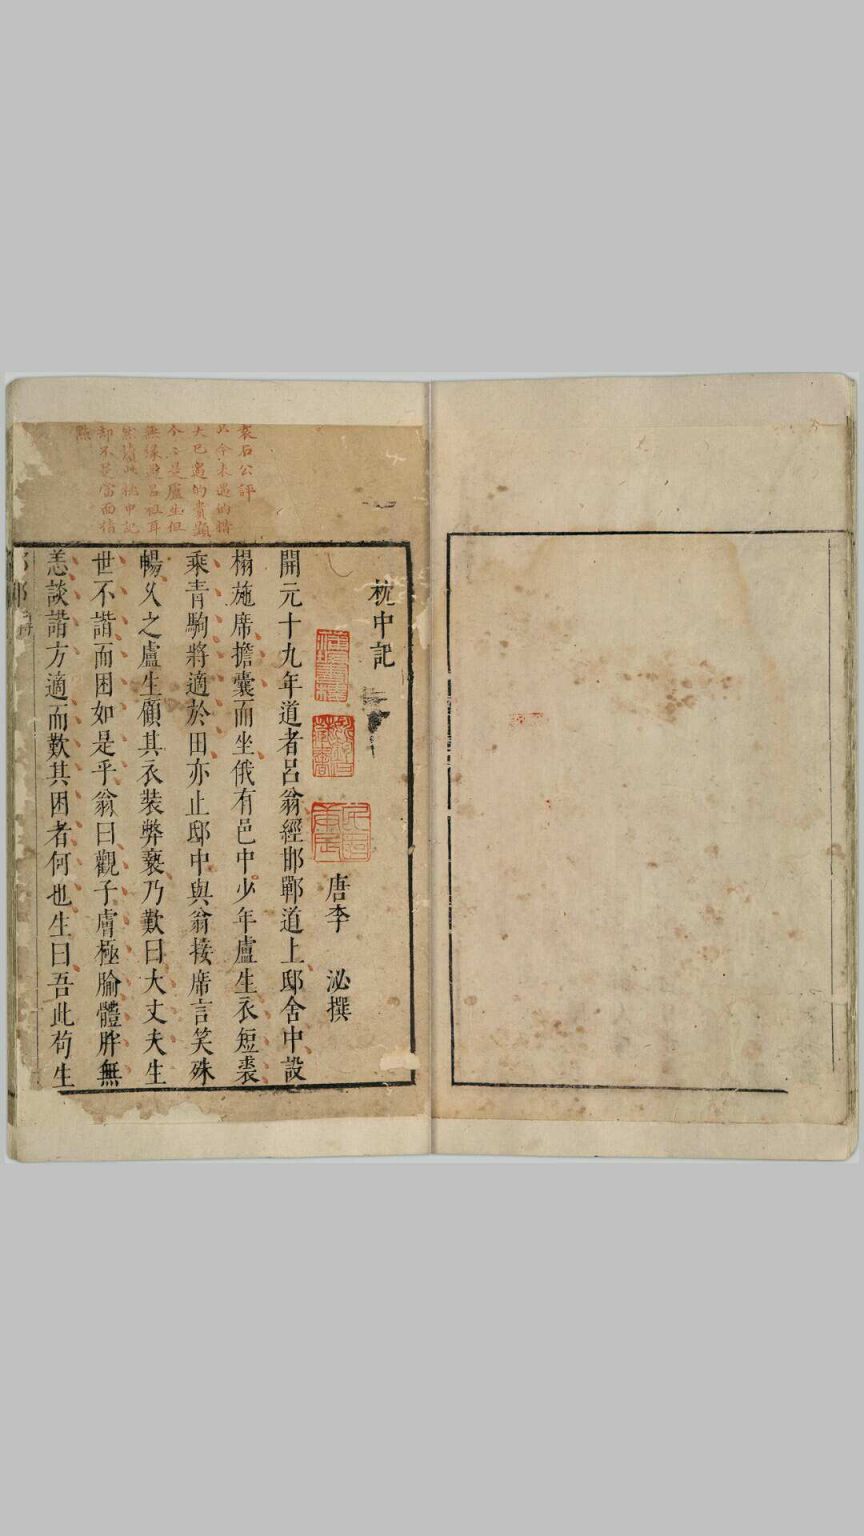 枕中記
唐李　泌撰
開元十九年道者呂翁經邯鄲道上邸舍中設
榻施席擔囊而坐俄有邑中少年盧生衣短裘
乘青駒將適於田亦止邸中與翁接席言笑殊
暢久之盧生顧其衣裝弊褻乃歎曰大丈夫生
世不諧而困如是乎翁曰觀子膚極腧體胖無
恙談諧方適而歎其困者何也生曰吾此苟生
袁石公評
古今未遇的措
大已遇的貴顯
个个是盧生但
無緣遇呂祖耳
然讀此枕中記
却不是當面指
點